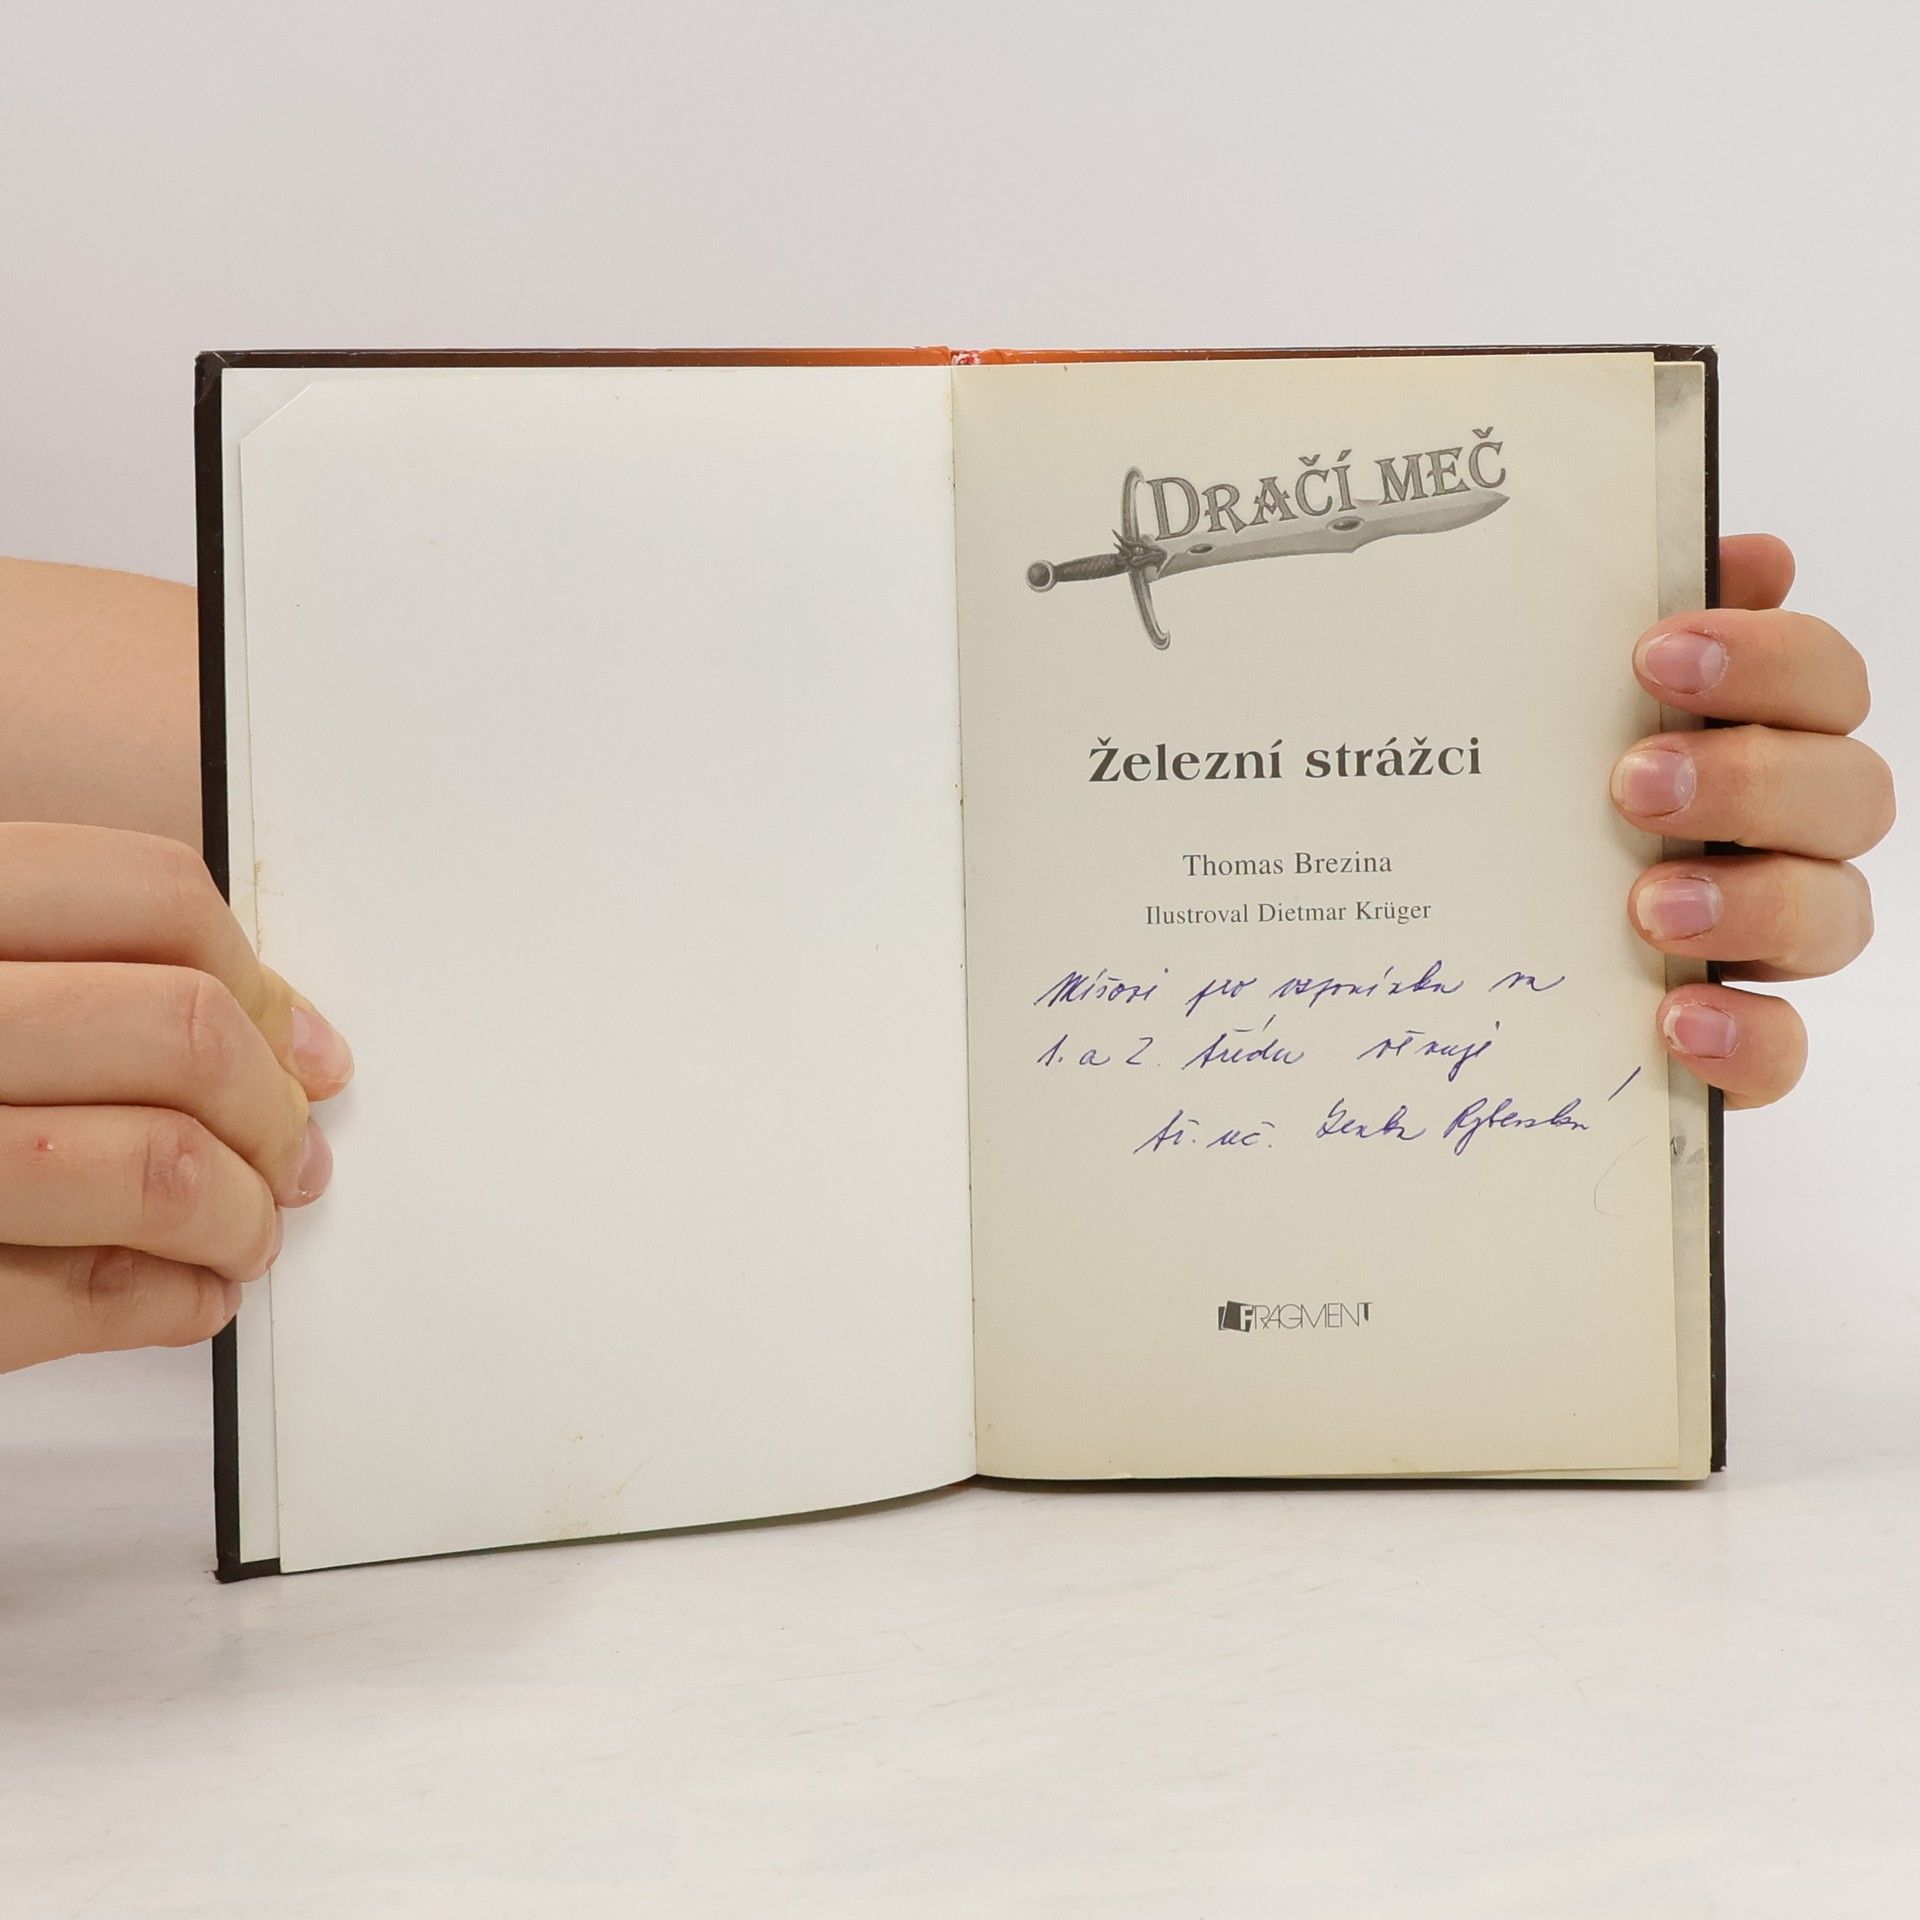 DRAČÍ MEČ
Železní strážci
Thomas Brezina
Ilustroval Dietmar Krüger
Míšovi pro vzpomínku na
1. a 2. třídu věnuje
tř. uč. Lenka Rybenská
FRAGMENT